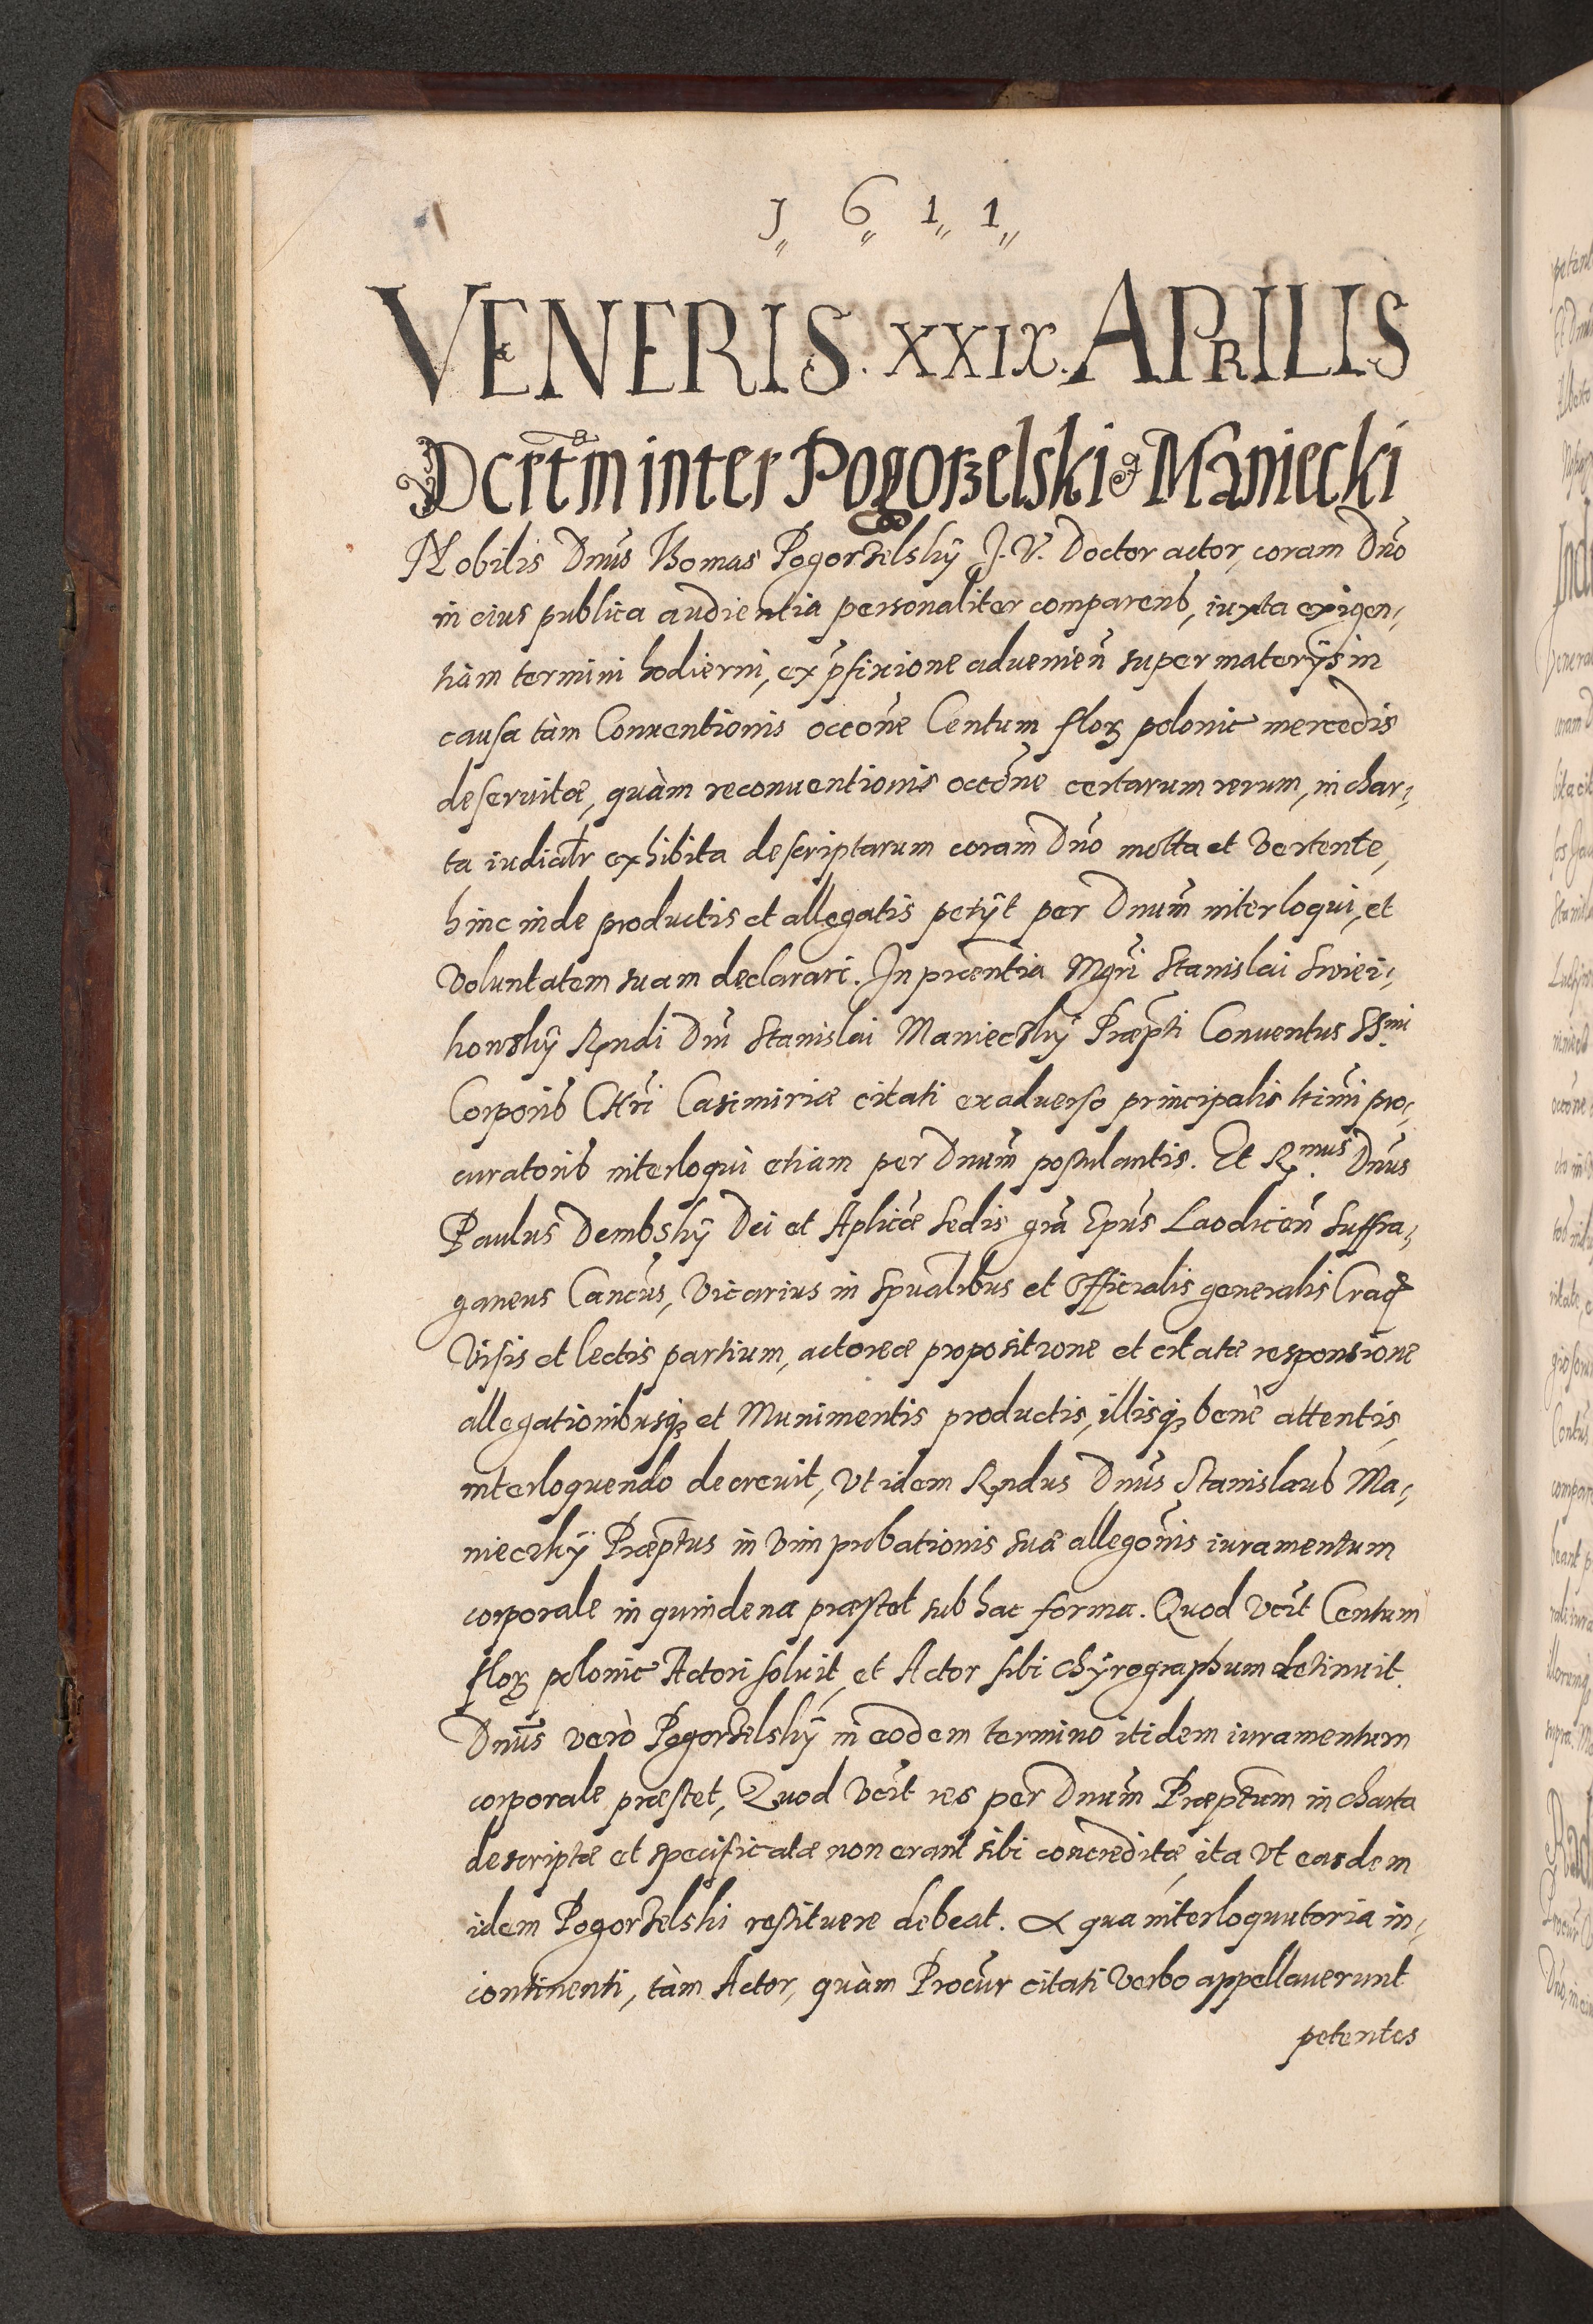 J 6 1 1
VENERIS. XXIX. APRILIS
Dcrtm inter Pogorzelski et Maniecki
Nobilis Dnus Thomas Pogorzelsky J. V. Doctor actor, coram Dno
in eius publica audientia personaliter comparens, iuxta exigen,
tiam termini hodierni, ex pfixione aduenien super materijs in
causa tàm Conuentionis occone Centum flor polonic mercedis
deseruitæ, quàm reconuentionis occone certarum rerum, in char,
ta iudicialr exhibita descriptarum coram Dno motta et vertente,
hinc inde productis et allegatis petijt per Dnum interloqui, et
voluntatem suam declarari. In pncentia Mgri Stanislai Swiei,
kowsky Rndi Dni Stanislai Maniecky Præpti Conuentus SSmi
Corporis Chri Casimiriæ citati ex aduerso principalis ltimi pro,
curatoris interloqui etiam per Dnum postulantis. Et Rmus Dnus
Paulus Dembsky Dei et Aplicæ Sedis gra Epus Laodicen Suffra,
ganeus Cancus, Vicarius in Spualibus et Officialis generalis Crac
Visis et lectis partium, actoreæ propositione et citatæ responsione
allegationibusq et Munimentis productis, illisq benè attentis,
interloquendo decreuit, Vt idem Rndus Dnus Stanislaus Ma,
niecky Præptus in vim probationis suæ allegonis iuramentum
corporale in quindena præstet sub hac forma. Quod vert Centum
flor polonic Actori soluit, et Actor sibi chyrographum detinuit.
Dnus verò Pogorzelsky in eodem termino itidem iuramentum
corporale præstet, Quod vert res per Dnum Præptum in charta
descriptæ et specificatæ non erant sibi concreditæ, ita Vt easdem
idem Pogorzelski restituere debeat. A qua interloquutoria in,
continenti, tàm Actor, quàm Procur citati verbo appellauerunt
petentes